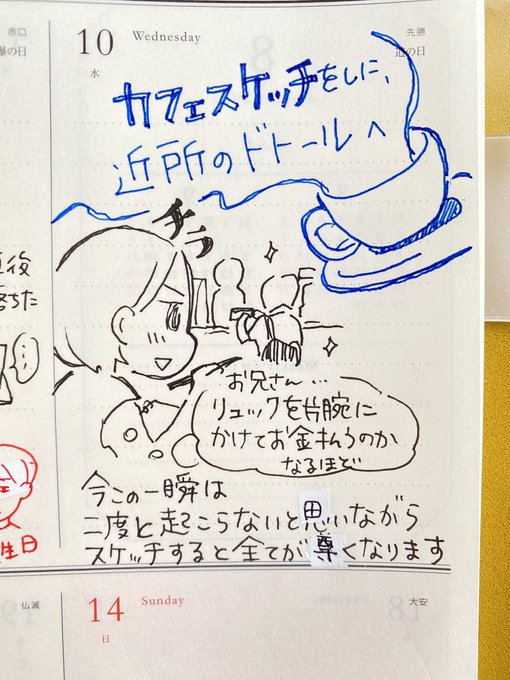 赤口
の日
10 Wednesday
水
先勝
道の日
カフェスケッチをしに、
近所のドトールへ
チラ
後
落ちた
お兄さん…
リュックを片腕に
かけてお金払うのか
なるほど
今この一瞬は
二度と起こらないと思いながら
スケッチすると全てが尊くなります
生日
仏滅
14 Sunday
日
大安